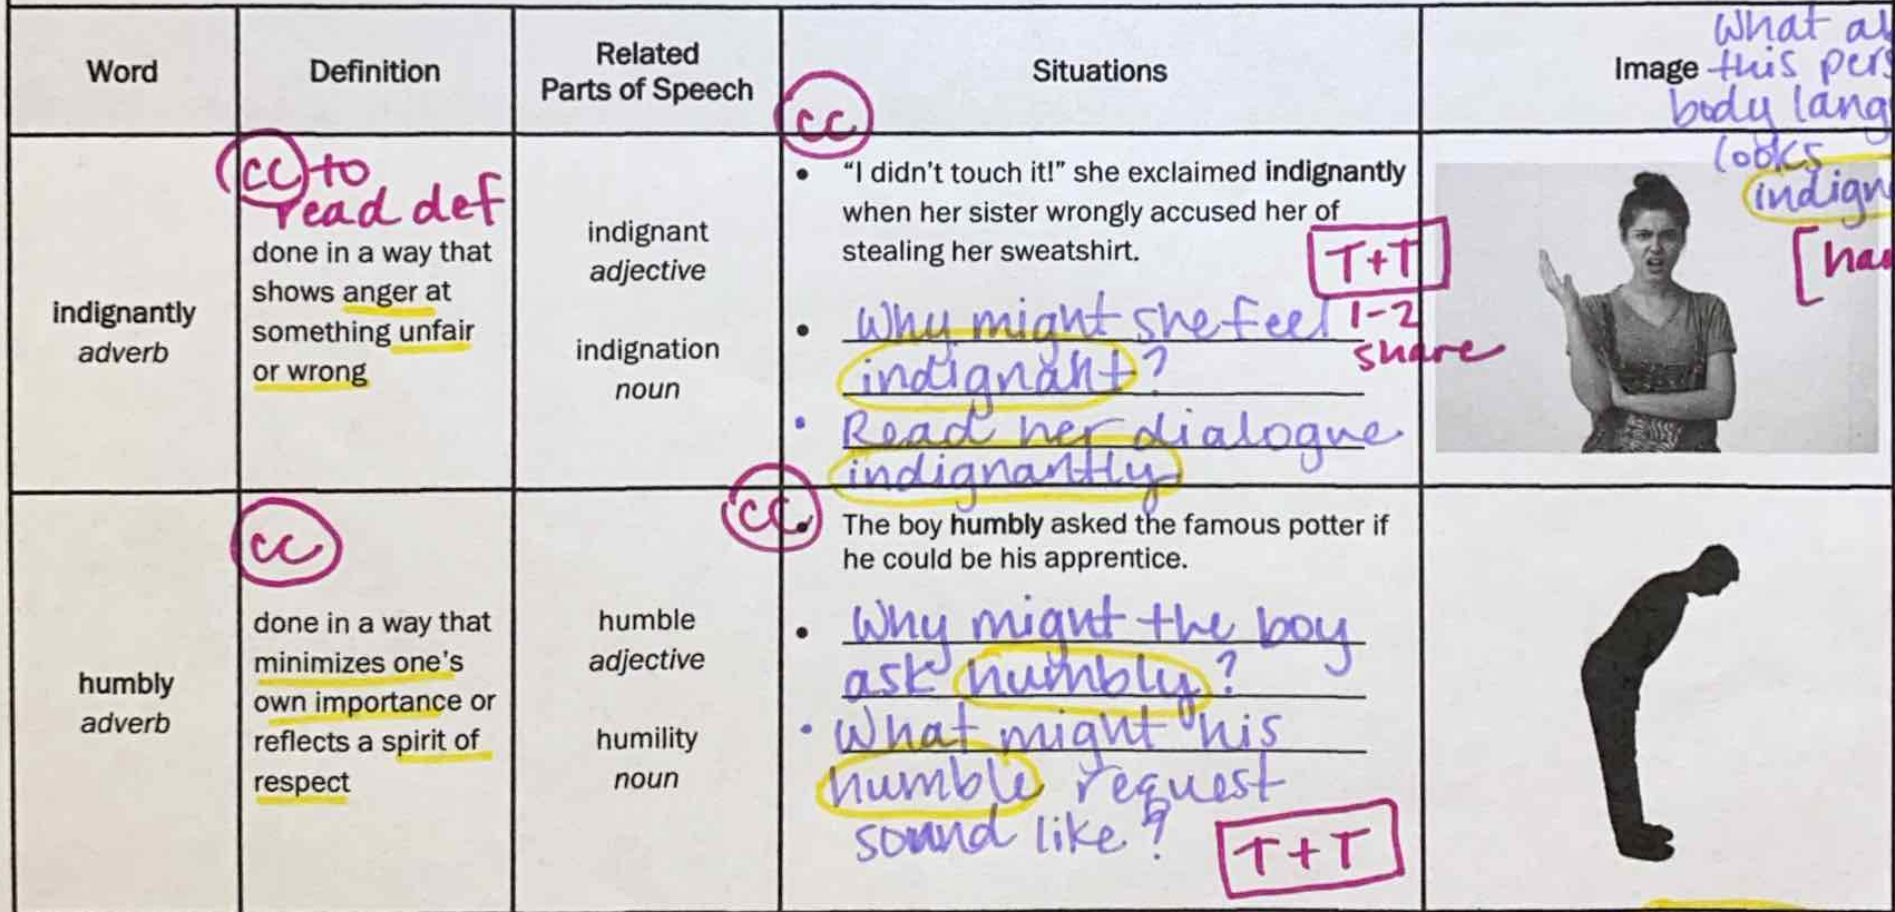 Word
Definition
Related
Parts of Speech
Situations
Image
What
this
body
looks
cc
cc to
read def
indignantly
adverb
done in a way that
shows anger at
something unfair
or wrong
indignant
adjective
indignation
noun
• “I didn’t touch it!” she exclaimed indignantly
when her sister wrongly accused her of
stealing her sweatshirt.
T+T
1-2
share
• Why might she feel
indignant?
• Read her dialogue
indignantly
cc
cc
humbly
adverb
done in a way that
minimizes one’s
own importance or
reflects a spirit of
respect
humble
adjective
humility
noun
• The boy humbly asked the famous potter if
he could be his apprentice.
• Why might the boy
ask humbly?
• What might his
humble request
sound like?
T+T